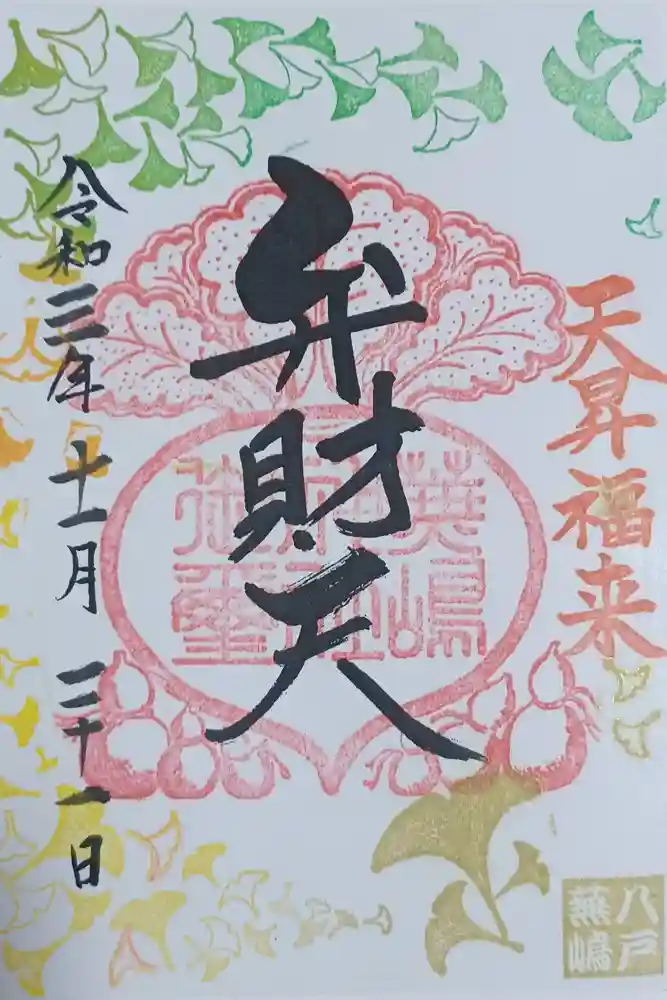 天昇福来
弁財天
蕪嶋
神社
御璽
令和三年 十一月 二十一日
八戸
蕪嶋